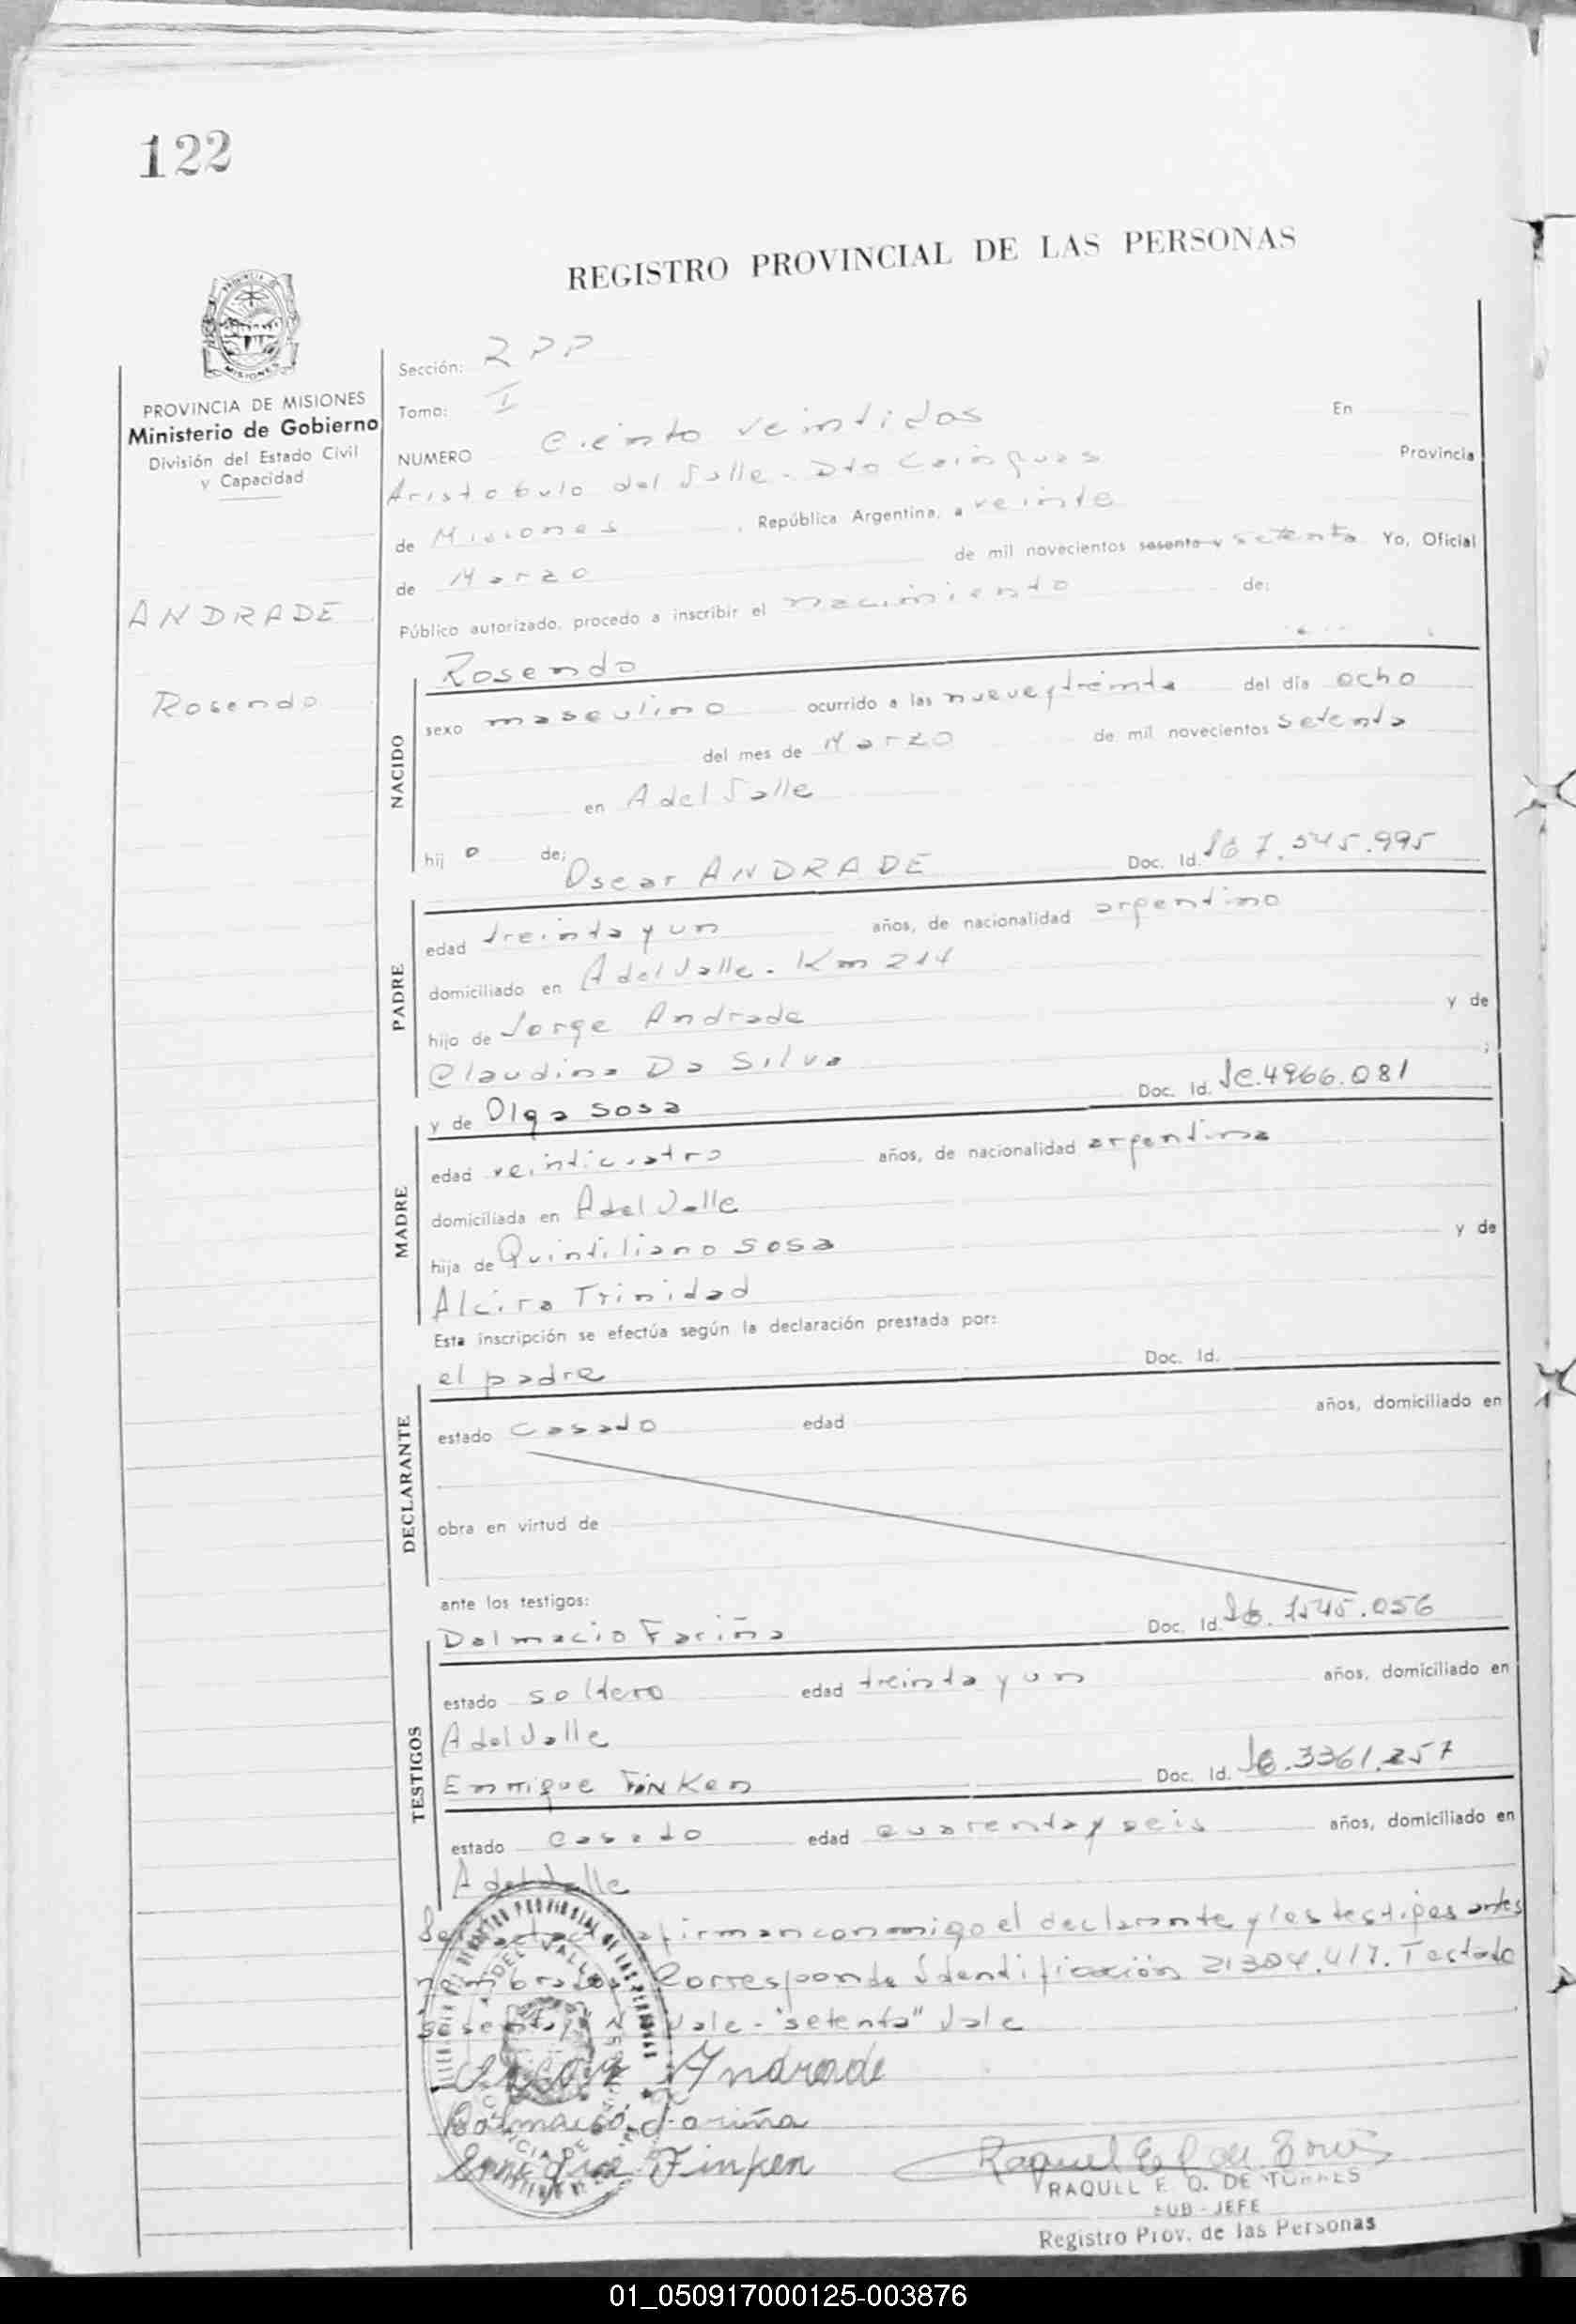 122
REGISTRO PROVINCIAL DE LAS PERSONAS
PROVINCIA DE MISIONES
Ministerio de Gobierno
División del Estado Civil
y Capacidad
ANDRADE
Rosendo
Sección: RPP
Tomo: I
NUMERO Ciento veintidos En
Aristobulo del Valle - Dto Cainguas Provincia
de Misiones, República Argentina, a veinte
de Marzo de mil novecientos sesenta y setenta Yo, Oficial
Público autorizado, procedo a inscribir el nacimiento de:
NACIDO
Rosendo
sexo masculino ocurrido a las nueve y treinta del día ocho
del mes de Marzo de mil novecientos setenta
en A del Valle
hijo de:
PADRE
Oscar ANDRADE Doc. Id. 7.545.995
edad treinta y un años, de nacionalidad argentino
domiciliado en A del Valle - Km 214
hijo de Jorge Andrade y de
Claudina Da Silva ;
MADRE
y de Olga Sosa Doc. Id. 4966.081
edad veinticuatro años, de nacionalidad argentina
domiciliada en A del Valle
hija de Quintiliano Sosa y de
Alcira Trinidad
Esta inscripción se efectúa según la declaración prestada por:
DECLARANTE
el padre Doc. Id.
estado casado edad años, domiciliado en
obra en virtud de
ante los testigos:
TESTIGOS
Dalmacio Fariña Doc. Id. 7.545.056
estado soltero edad treinta y un años, domiciliado en
A del Valle
Enrrique Finken Doc. Id. 3361.257
estado casado edad cuarenta y seis años, domiciliado en
A del Valle
firman conmigo el declarante y los testigos antes
nombrados Corresponde Identificación 21.304.417. Testado
sesenta y No Vale - "setenta" Vale
Oscar Andrade
Dalmacio Fariña
Enrrique Finken
RAQUEL E. Q. DE TORRES
SUB-JEFE
Registro Prov. de las Personas
01_050917000125-003876